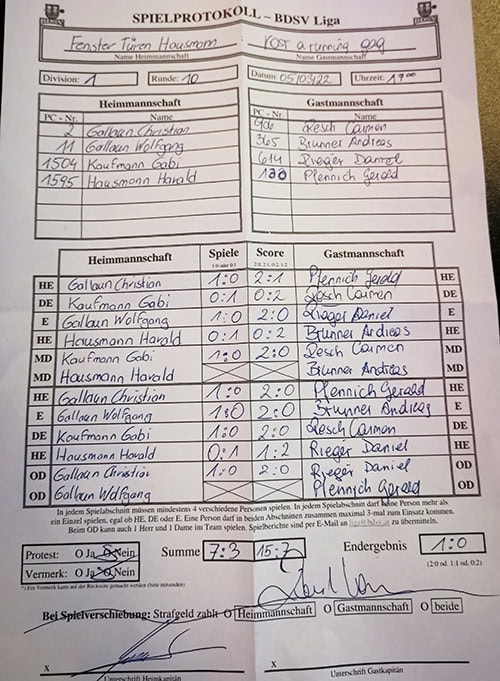 SPIELPROTOKOLL – BDSV Liga
Fenster Türen Hausmann Kost a running gag
Name Heimmannschaft Name Gastmannschaft
Division: 1 Runde: 10 Datum: 05/03/22 Uhrzeit: 19°°
Heimmannschaft Gastmannschaft
PC - Nr. Name PC - Nr. Name
2 Gallaun Christian 96 Resch Carmen
11 Gallaun Wolfgang 365 Brunner Andreas
1504 Kaufmann Gabi 614 Rieger Daniel
1595 Hausmann Harald 130 Pfennich Gerald
Heimmannschaft Spiele Score Gastmannschaft
1:0 oder 0:1 2:0, 2:1, 0:2, 1:2
HE Gallaun Christian 1:0 2:1 Pfennich Gerald HE
DE Kaufmann Gabi 0:1 0:2 Resch Carmen DE
E Gallaun Wolfgang 1:0 2:0 Rieger Daniel E
HE Hausmann Harald 0:1 0:2 Brunner Andreas HE
MD Kaufmann Gabi 1:0 2:0 Resch Carmen MD
MD Hausmann Harald Brunner Andreas MD
HE Gallaun Christian 1:0 2:0 Pfennich Gerald HE
E Gallaun Wolfgang 1:0 2:0 Brunner Andreas E
DE Kaufmann Gabi 1:0 2:0 Resch Carmen DE
HE Hausmann Harald 0:1 1:2 Rieger Daniel HE
OD Gallaun Christian 1:0 2:0 Rieger Daniel OD
OD Gallaun Wolfgang Pfennich Gerald OD
In jedem Spielabschnitt müssen mindestens 4 verschiedene Personen spielen. In jedem Spielabschnitt darf keine Person mehr als
ein Einzel spielen, egal ob HE, DE oder E. Eine Person darf in beiden Abschnitten zusammen maximal 3-mal zum Einsatz kommen.
Beim OD kann auch 1 Herr und 1 Dame im Team spielen. Spielberichte sind per E-Mail an liga@bdsv.at zu übermitteln.
Protest: O Ja O Nein Summe 7:3 15:7 Endergebnis 1:0
Vermerk: O Ja O Nein (2:0 od. 1:1 od. 0:2)
*) Ein Vermerk kann auf der Rückseite gemacht werden (bitte mitsenden)
Bei Spielverschiebung: Strafgeld zahlt O Heimmannschaft O Gastmannschaft O beide
X X
Unterschrift Heimkapitän Unterschrift Gastkapitän